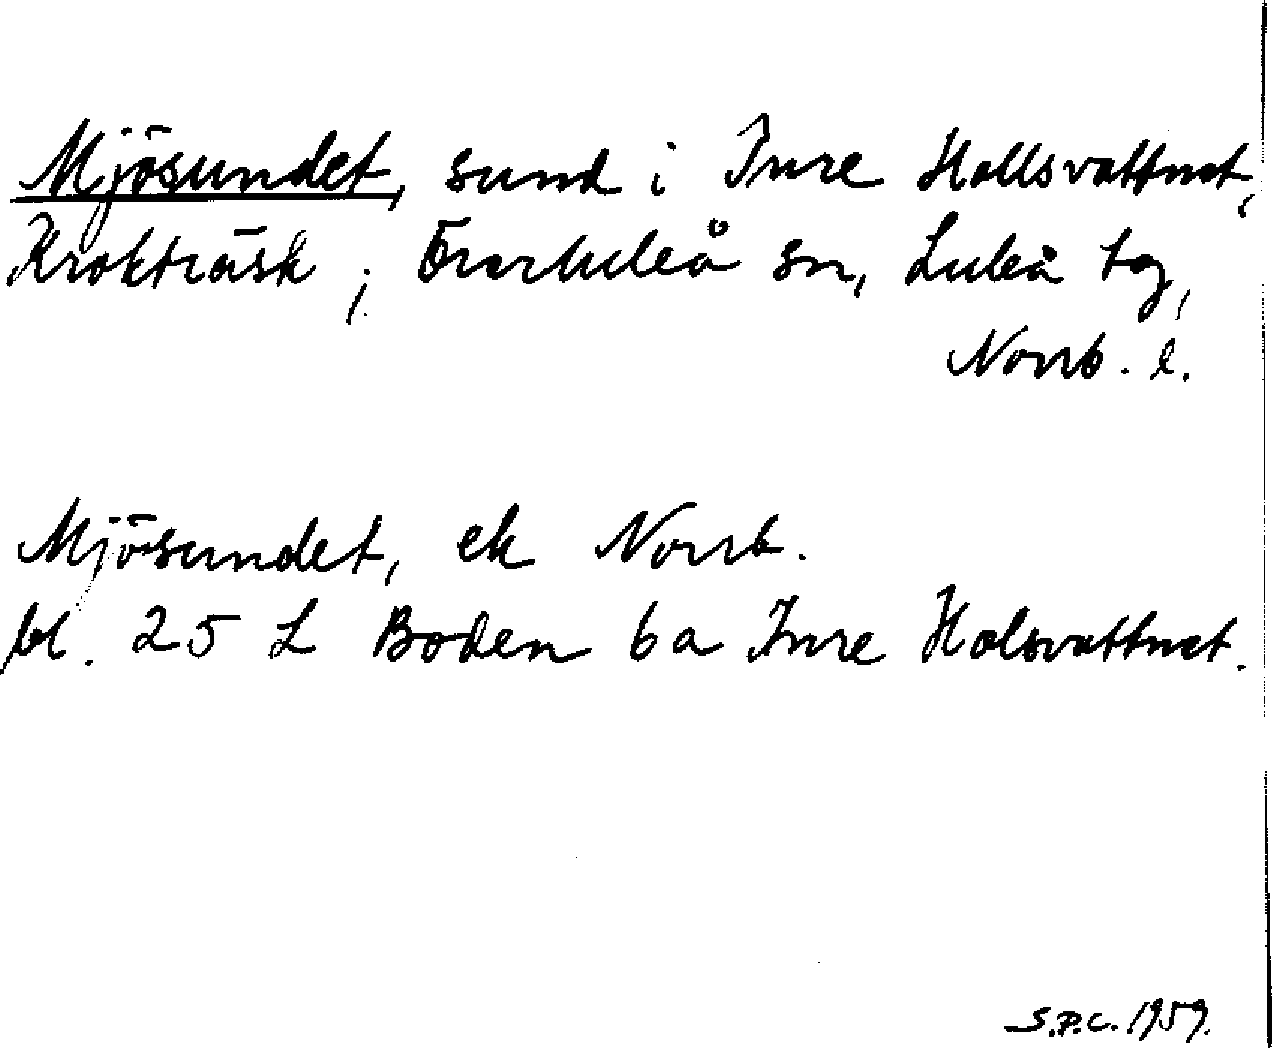 Mjösundet, sund i Inre Hollsvattnet,
Krokträsk, Överluleå sn, Luleå tg,
Norrb. l.
Mjösundet, ek Norrb.
bl. 25 L Boden 6a Inre Holsvattnet.
S.P.C. 1959.